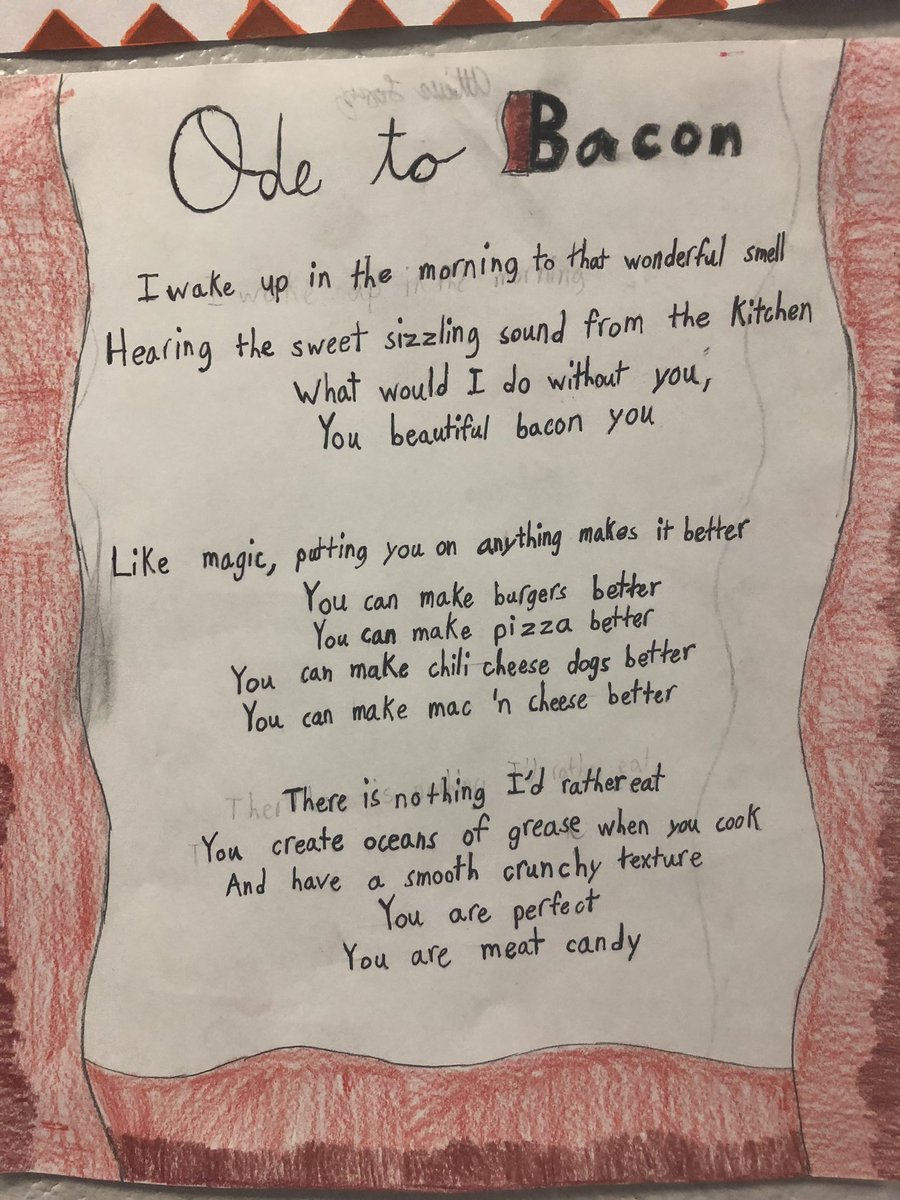 Ode to Bacon
I wake up in the morning to that wonderful smell
Hearing the sweet sizzling sound from the Kitchen
What would I do without you,
You beautiful bacon you
Like magic, putting you on anything makes it better
You can make burgers better
You can make pizza better
You can make chili cheese dogs better
You can make mac 'n cheese better
There is nothing I'd rather eat
You create oceans of grease when you cook
And have a smooth crunchy texture
You are perfect
You are meat candy